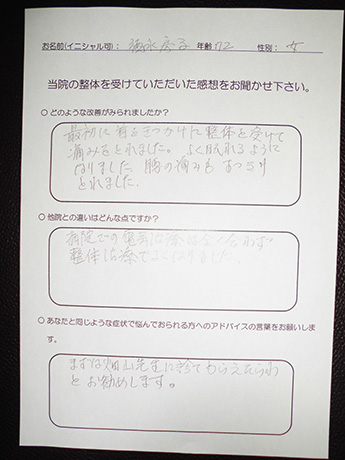 お名前(イニシャル可): 年齢 72 性別: 女
当院の整体を受けていただいた感想をお聞かせ下さい。
○ どのような改善がみられましたか?
最初に 整体を受けて
痛みをとれました。よく眠れるように
なりました 腰の痛みも すっきり
とれました。
○ 他院との違いはどんな点ですか?
病院での電気治療は全く合わず
整体治療でよくなりました。
○ あなたと同じような症状で悩んでおられる方へのアドバイスの言葉をお願いしま
す。
まずは畑山先生に診てもらえたらわ
とお勧めします。